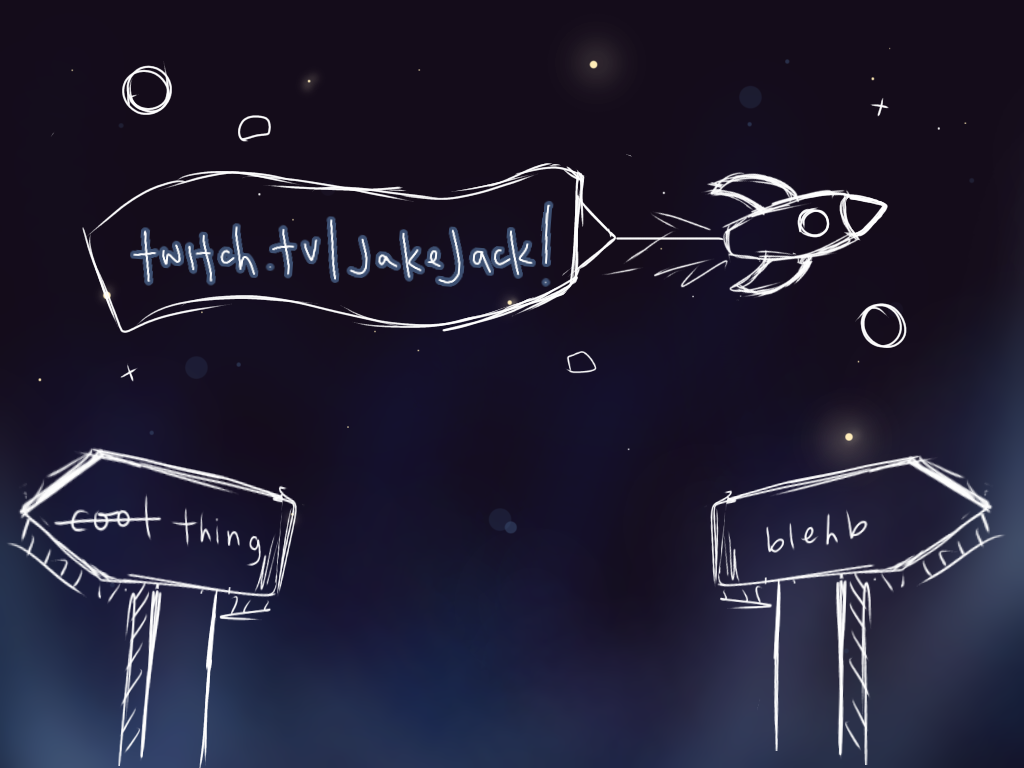 twitch.tv/JakeJack!
cool thing
blehb